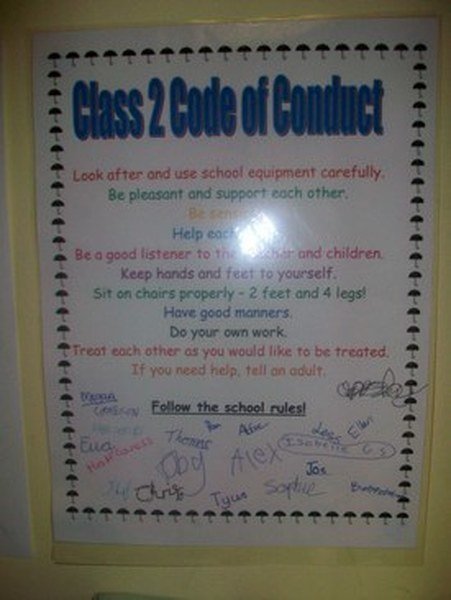 Class 2 Code of Conduct
Look after and use school equipment carefully.
Be pleasant and support each other.
Be
Help each
Be a good listener to the teacher and children.
Keep hands and feet to yourself.
Sit on chairs properly – 2 feet and 4 legs!
Have good manners.
Do your own work.
Treat each other as you would like to be treated.
If you need help, tell an adult.
Follow the school rules!
Megan
Ellen
Thomas
Alex
Isabelle
Jos
Chris
Tyus
Sophie